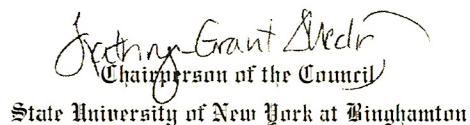 Kathryn Grant Madi
Chairperson of the Council
State University of New York at Binghamton